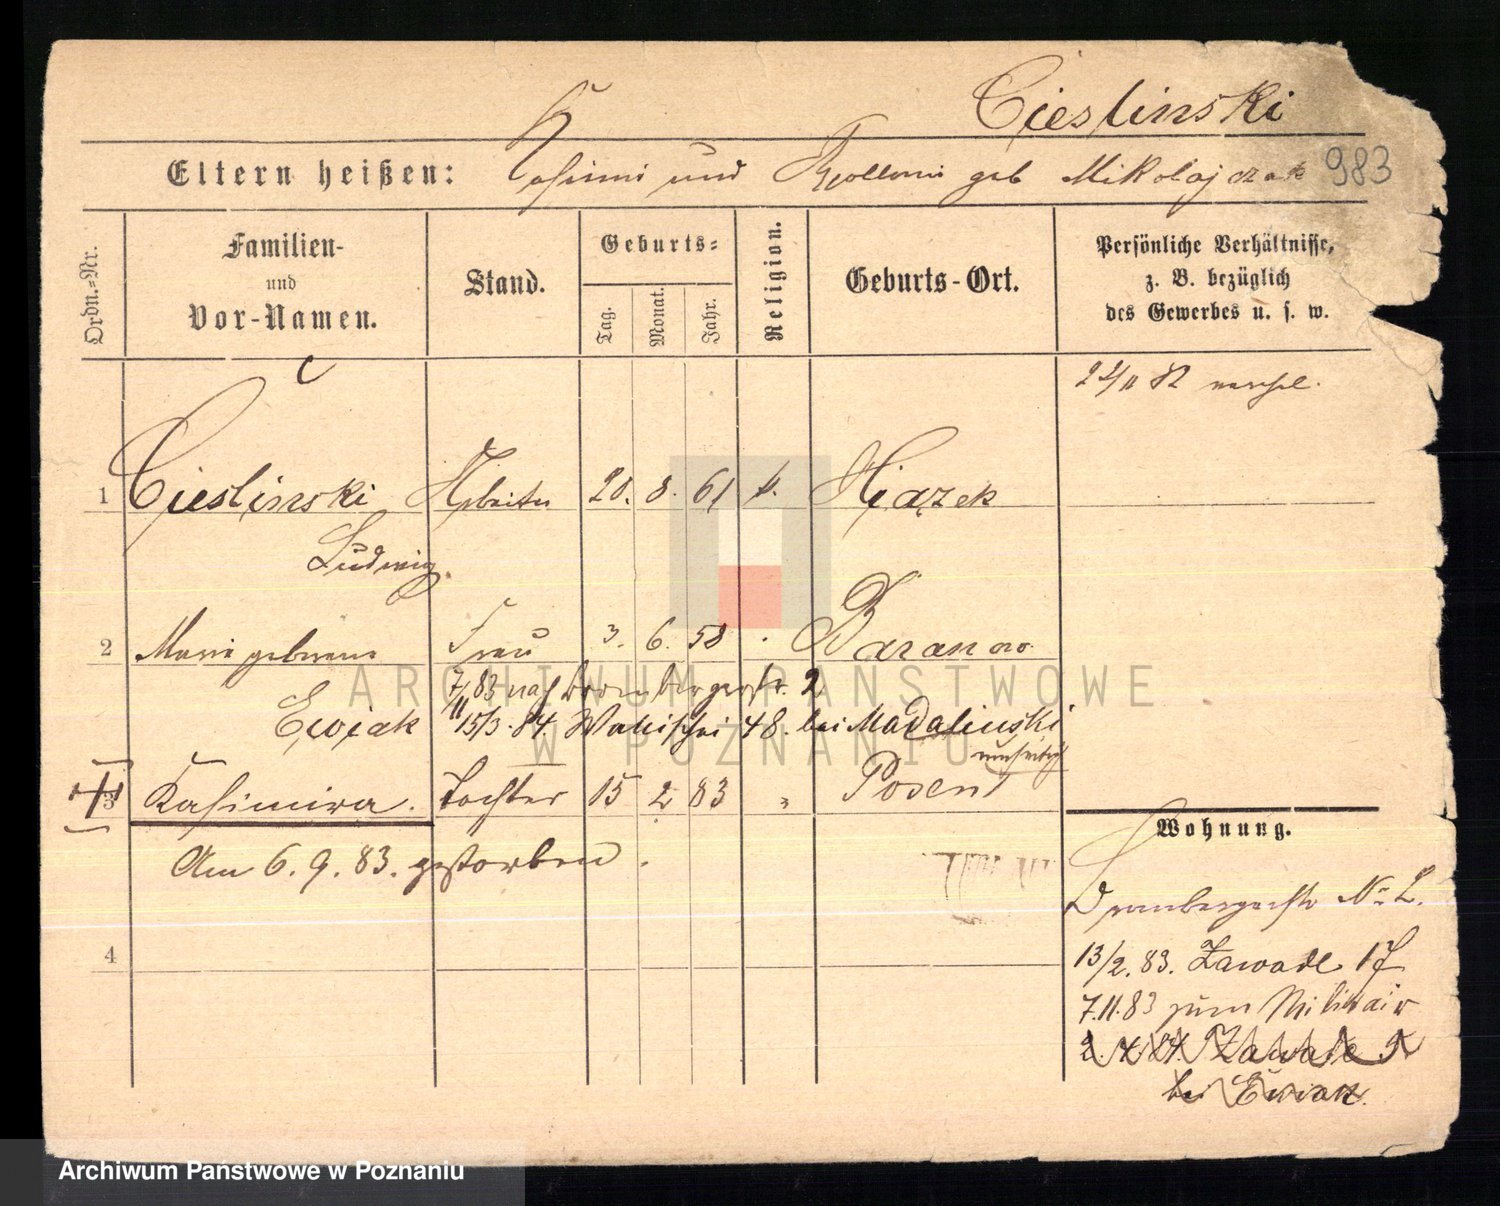 Cieslinski
Eltern heißen: Kasimir und Apollonie geb Mikolajczak 983
Ordn.=Nr.
Familien-
und
Vor-Namen.
Stand.
Geburts=
Tag.
Monat.
Jahr.
Religion.
Geburts-Ort.
Persönliche Verhältnisse,
z. B. bezüglich
des Gewerbes u. s. w.
82
1 Cieslinski Arbeiter 20. 8. 61 k. Hiązek
Ludwig
2 Marie geborene Frau 3. 6. 58 Baranow
7/11 83 nach Drombergerstr. 2
Ewiak 15/3. 84. Wallischei 48. bei Madalinski
3 Kasimira. Tochter 15 2 83 " Posen
Am 6. 9. 83. gestorben.
Wohnung.
Drombergerstr No 2.
4
13/2. 83. Zawade 17
7.11.83 zum Militair
2. 4. 84. Zawade 9
bei Ewiak.
ARCHIWUM PAŃSTWOWE
W POZNANIU
Archiwum Państwowe w Poznaniu